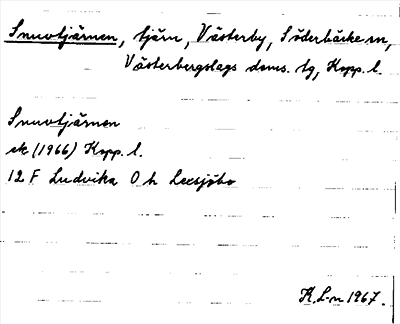 Snuvtjärnen, tjärn, Västerby, Söderbärke sn,
Västerbergslags doms. tg, Kopp. l.
Snuvtjärnen
ek (1966) Kopp. l.
12 F Ludvika O h Leesjöbo
K. L-n 1967.